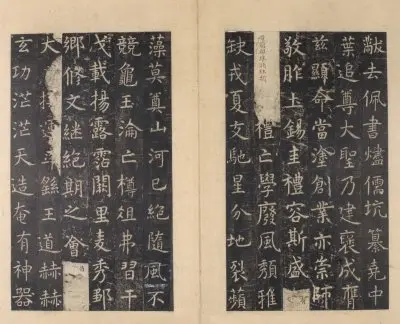 黻去佩書燼儒坑纂堯中
葉追尊大聖乃建褒成膺
茲顯命當塗創業亦崇師
敬胙土錫圭禮容斯盛
禮亡學廢風頹雅
缺戎夏交馳星分地裂蘋
藻莫奠山河已絕隨風不
競龜玉淪亡樽俎弗習干
戈載揚露霑闕里麥秀鄹
鄉修文繼絕期之會
大運率繇王道赫赫
玄功茫茫天造奄有神器